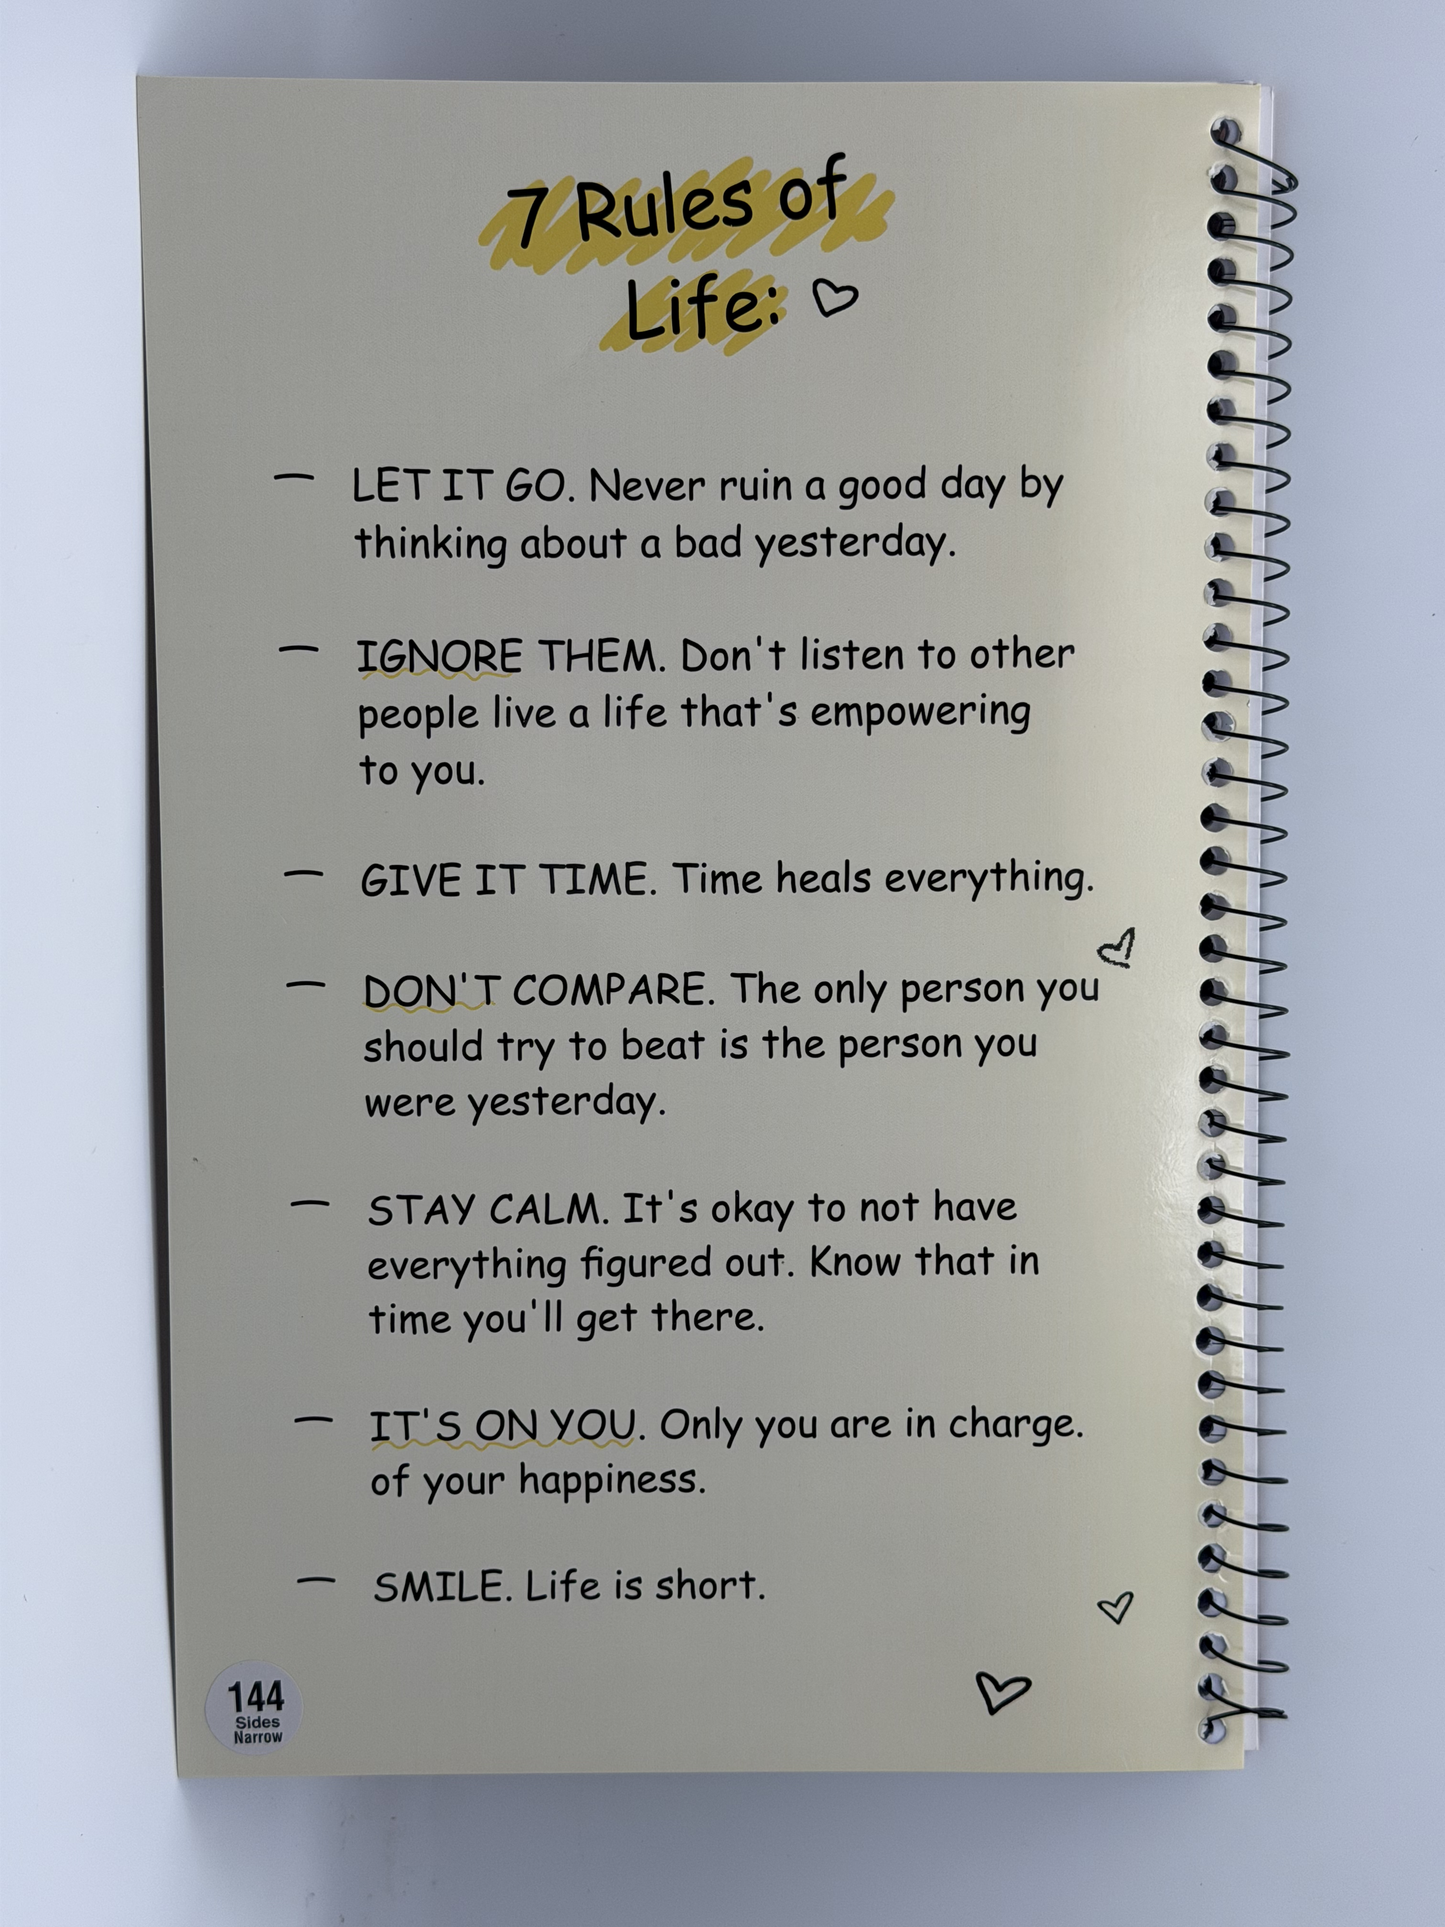 7 Rules of
Life:
— LET IT GO. Never ruin a good day by
thinking about a bad yesterday.
— IGNORE THEM. Don't listen to other
people live a life that's empowering
to you.
— GIVE IT TIME. Time heals everything.
— DON'T COMPARE. The only person you
should try to beat is the person you
were yesterday.
— STAY CALM. It's okay to not have
everything figured out. Know that in
time you'll get there.
— IT'S ON YOU. Only you are in charge.
of your happiness.
— SMILE. Life is short.
144
Sides
Narrow